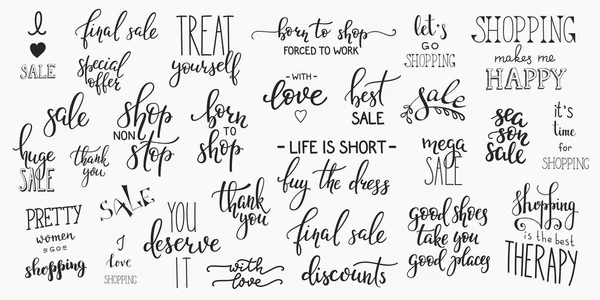 I
SALE
final sale
special
offer
TREAT
yourself
born to shop
FORCED TO WORK
let's
GO
SHOPPING
SHOPPING
makes me
HAPPY
sale
shop
NON
stop
born
TO
shop
- WITH -
love
best
SALE
sale
sea
son
sale
it's
time
for
SHOPPING
huge
SALE
thank
you
- LIFE IS SHORT -
buy the dress
mega
SALE
PRETTY
women
GO
shopping
SALE
I
love
SHOPPING
YOU
deserve
IT
thank
you
with
love
final sale
discounts
good shoes
take you
good places
Shopping
is the best
THERAPY